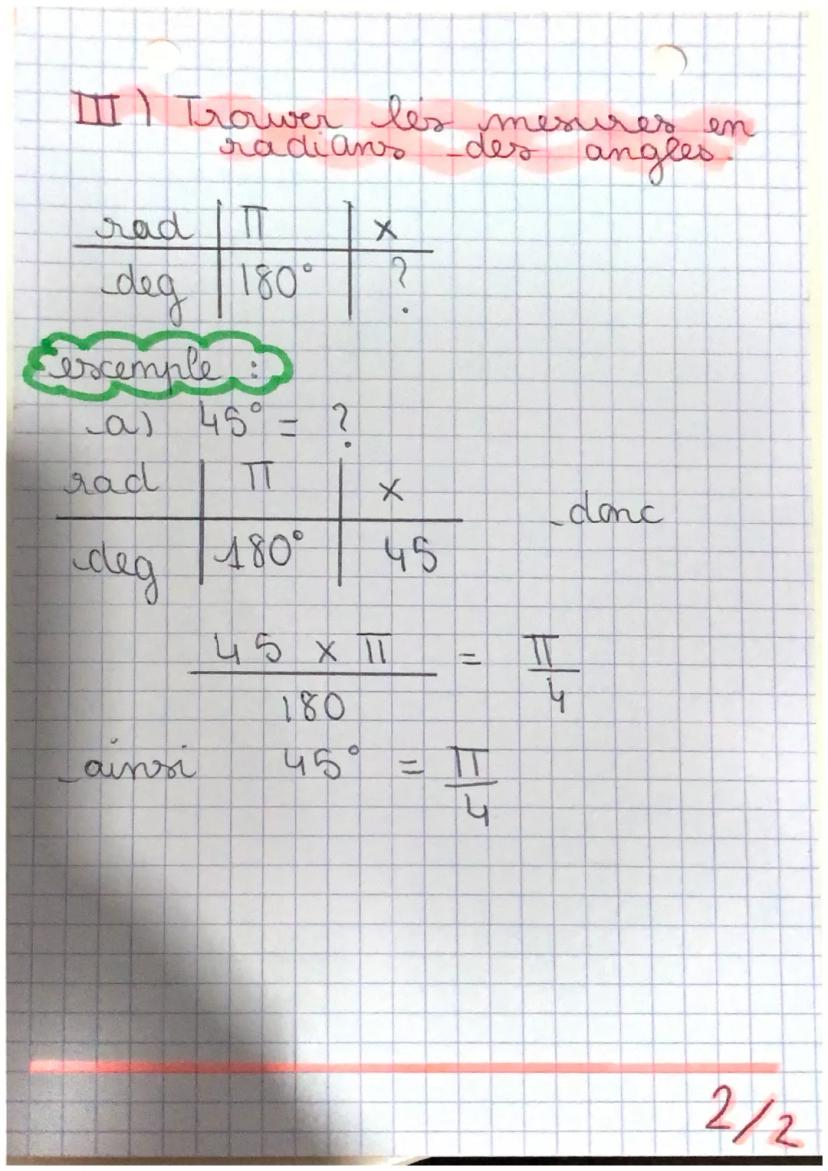 III) Trouver les mesures en
radians des angles.
rad | π | x
deg | 180° | ?
exemple :
a) 45° = ?
rad | π | x
deg | 180° | 45
donc
45 x π / 180 = π / 4
ainsi 45° = π / 4
2/2